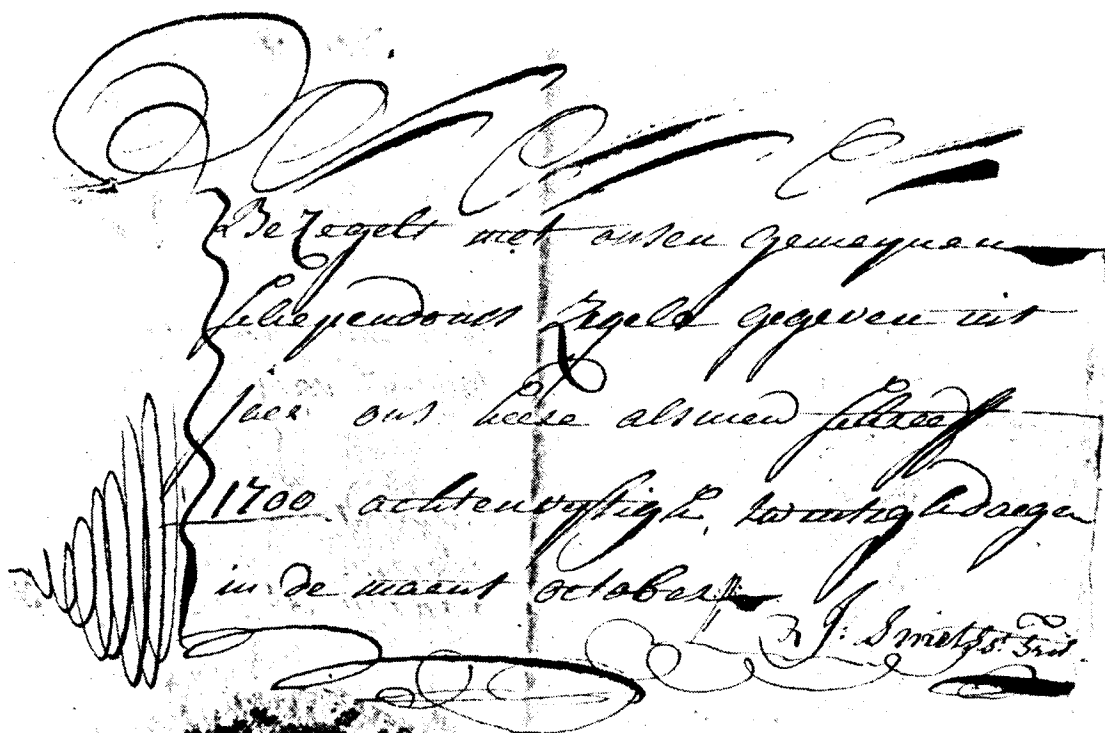 Bezegelt met onsen gemeynen
schependoms zegele gegeven int
jaer ons heere alsmen schreeff
1700 achtenvyftigh twintigh daegen
in de maent october
J: Smets